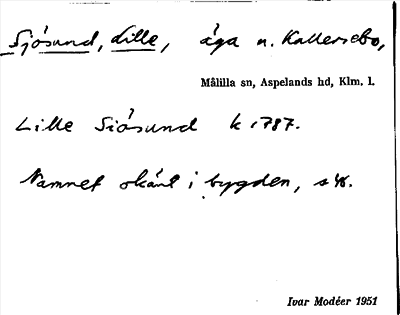 Sjösund, Lille, äga n. Kallersebo,
Målilla sn, Aspelands hd, Klm. l.
Lille Siösund k 1787.
Namnet okänt i bygden, s
Ivar Modéer 1951